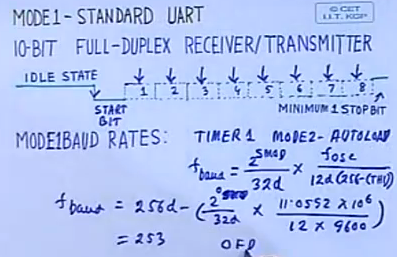 MODE1-STANDARD UART
© CET
I.I.T. KGP
10-BIT FULL-DUPLEX RECEIVER/TRANSMITTER
IDLE STATE
1 2 3 4 5 6 7 8
START BIT
MINIMUM 1 STOP BIT
MODE1BAUD RATES: TIMER 1 MODE2-AUTOLOAD
f baud = 2^SMOD / 32d × fosc / 12d(256-(TH1))
f baud = 256d - (2^0 / 32d × 11.0592 × 10^6 / 12 × 9600)
= 253 OFD